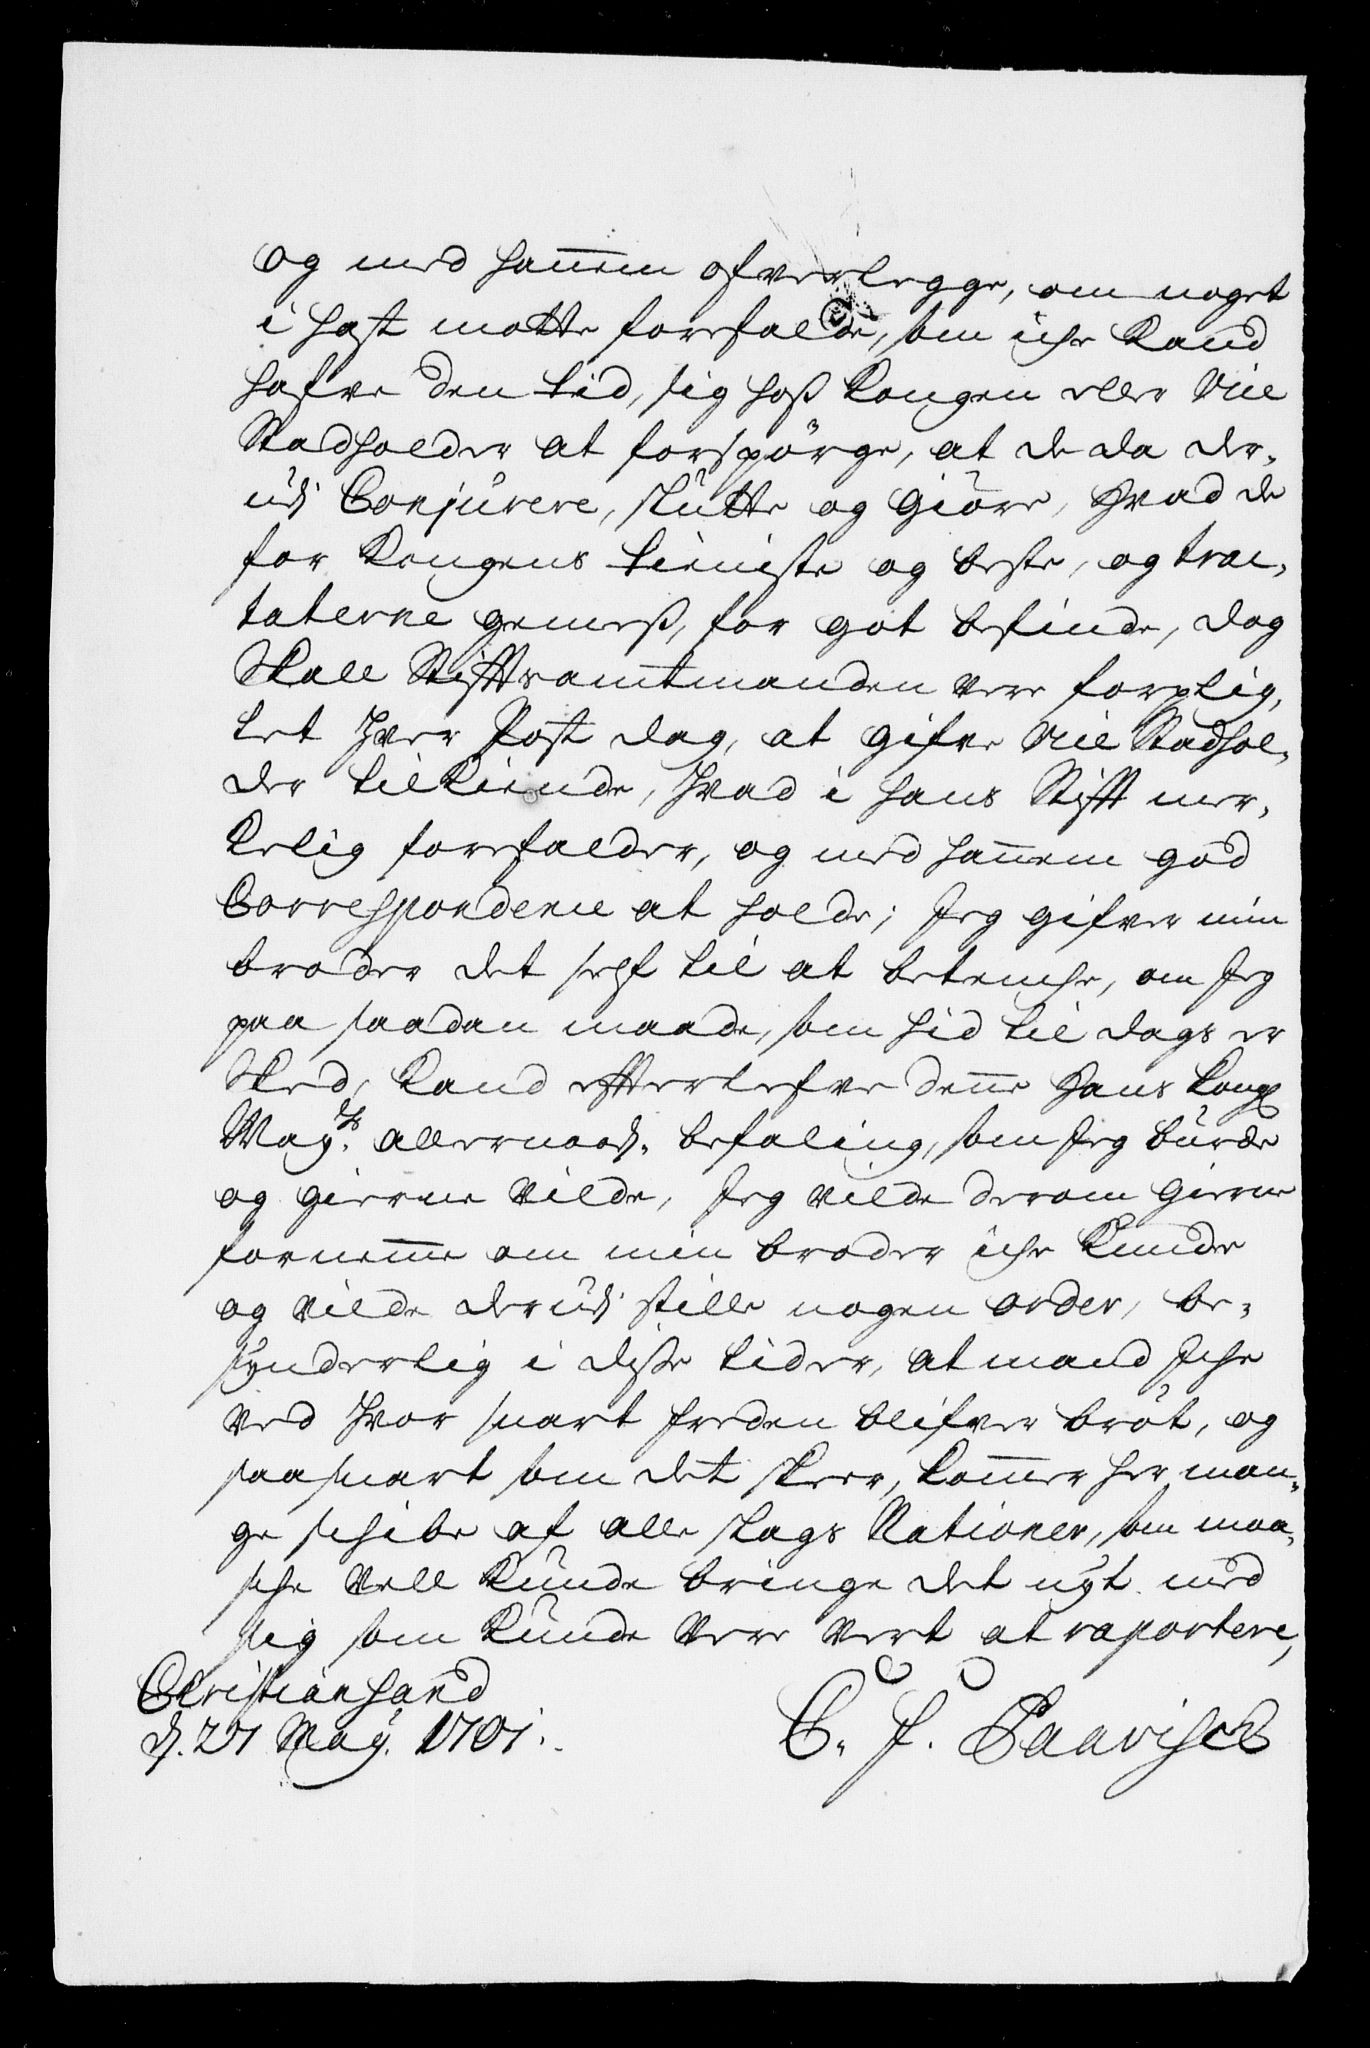 og med hannem ofverlegge, om noget
i hast motte forefalde, som iche Kand
hafve den tid, sig hoß Kongen eller Vice
Stadholder at forspörge, at de da der,
udj Conjurere, slutte og giöre, hvad de
for Kongens tieniste og beste, og trac,
taterne gemeß, for got befinde, dog
Skall Stifftsamtmanden vere forplig,
tet hver Post dag, at gifve Vice Stadhol,
der tilKiende, hvad i hans Stifft mer,
Kelig forefalder, og med hannem god
Correspondence at holde; Jeg gifver min
broder det self til at betenche, om Jeg
paa saadan maade, som hid til dags er
Sked, Kand effterlefve denne Hans Kongl
May.ts allernaad. befaling, som Jeg burde
og gierne Vilde, Jeg vilde derom gierne
fornemme om min broder iche Kunde
og vilde derudj stille nogen order, be,
synderlig i diße tider, at mand Iche
ved hvor snart freden blifver bröt, og
saa snart som det skeer, Kommer her man,
ge schibe af alle slags Nationer, som maa,
sche vell Kunde bringe det nyt med
sig som Kunde vere vert at raportere,
Christiansand
d. 27 May. 1701.
C. F. Paavisch